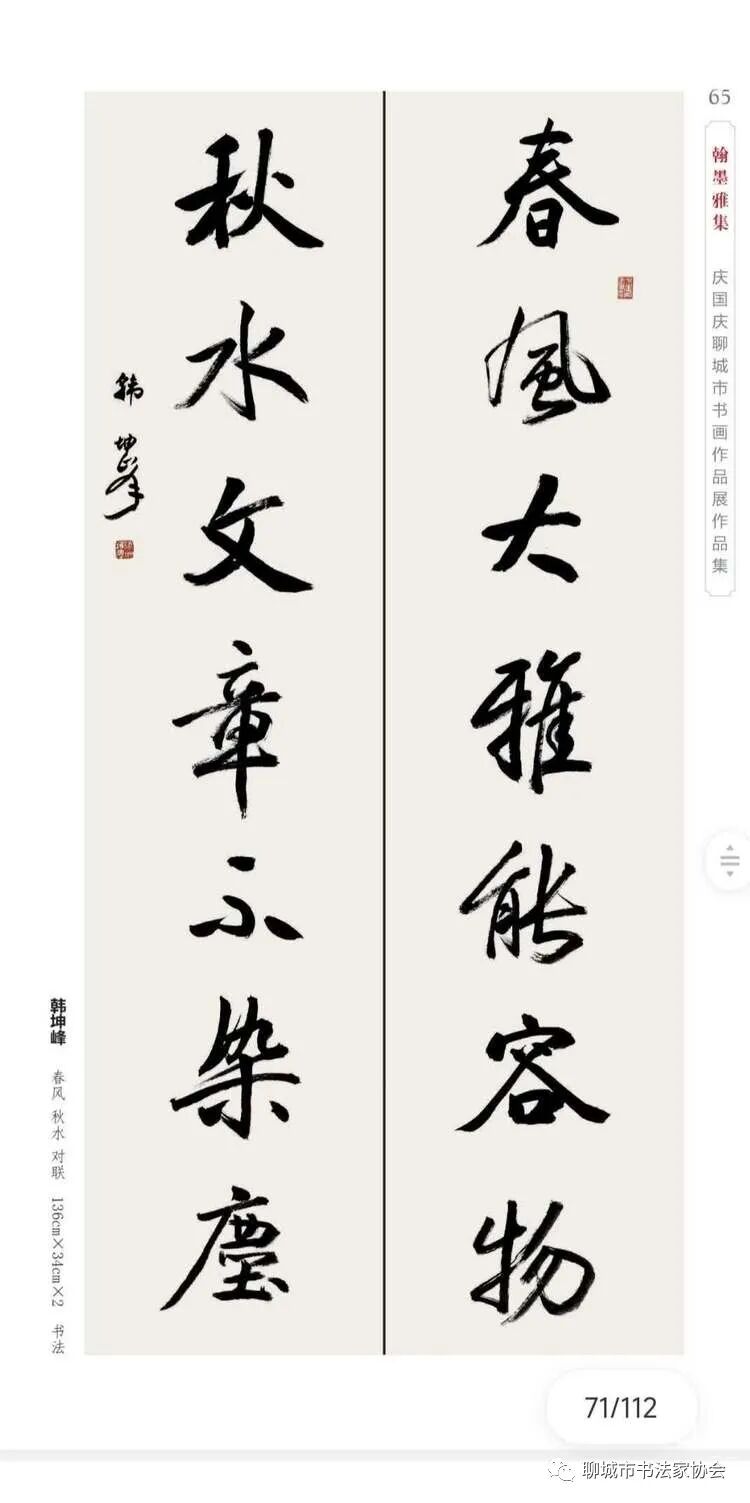 65
翰墨雅集 庆国庆聊城市书画作品展作品集
春風大雅能容物
秋水文章不染塵
韩坤峰
韩坤峰 春风 秋水 对联 136cm×34cm×2 书法
71/112
聊城市书法家协会